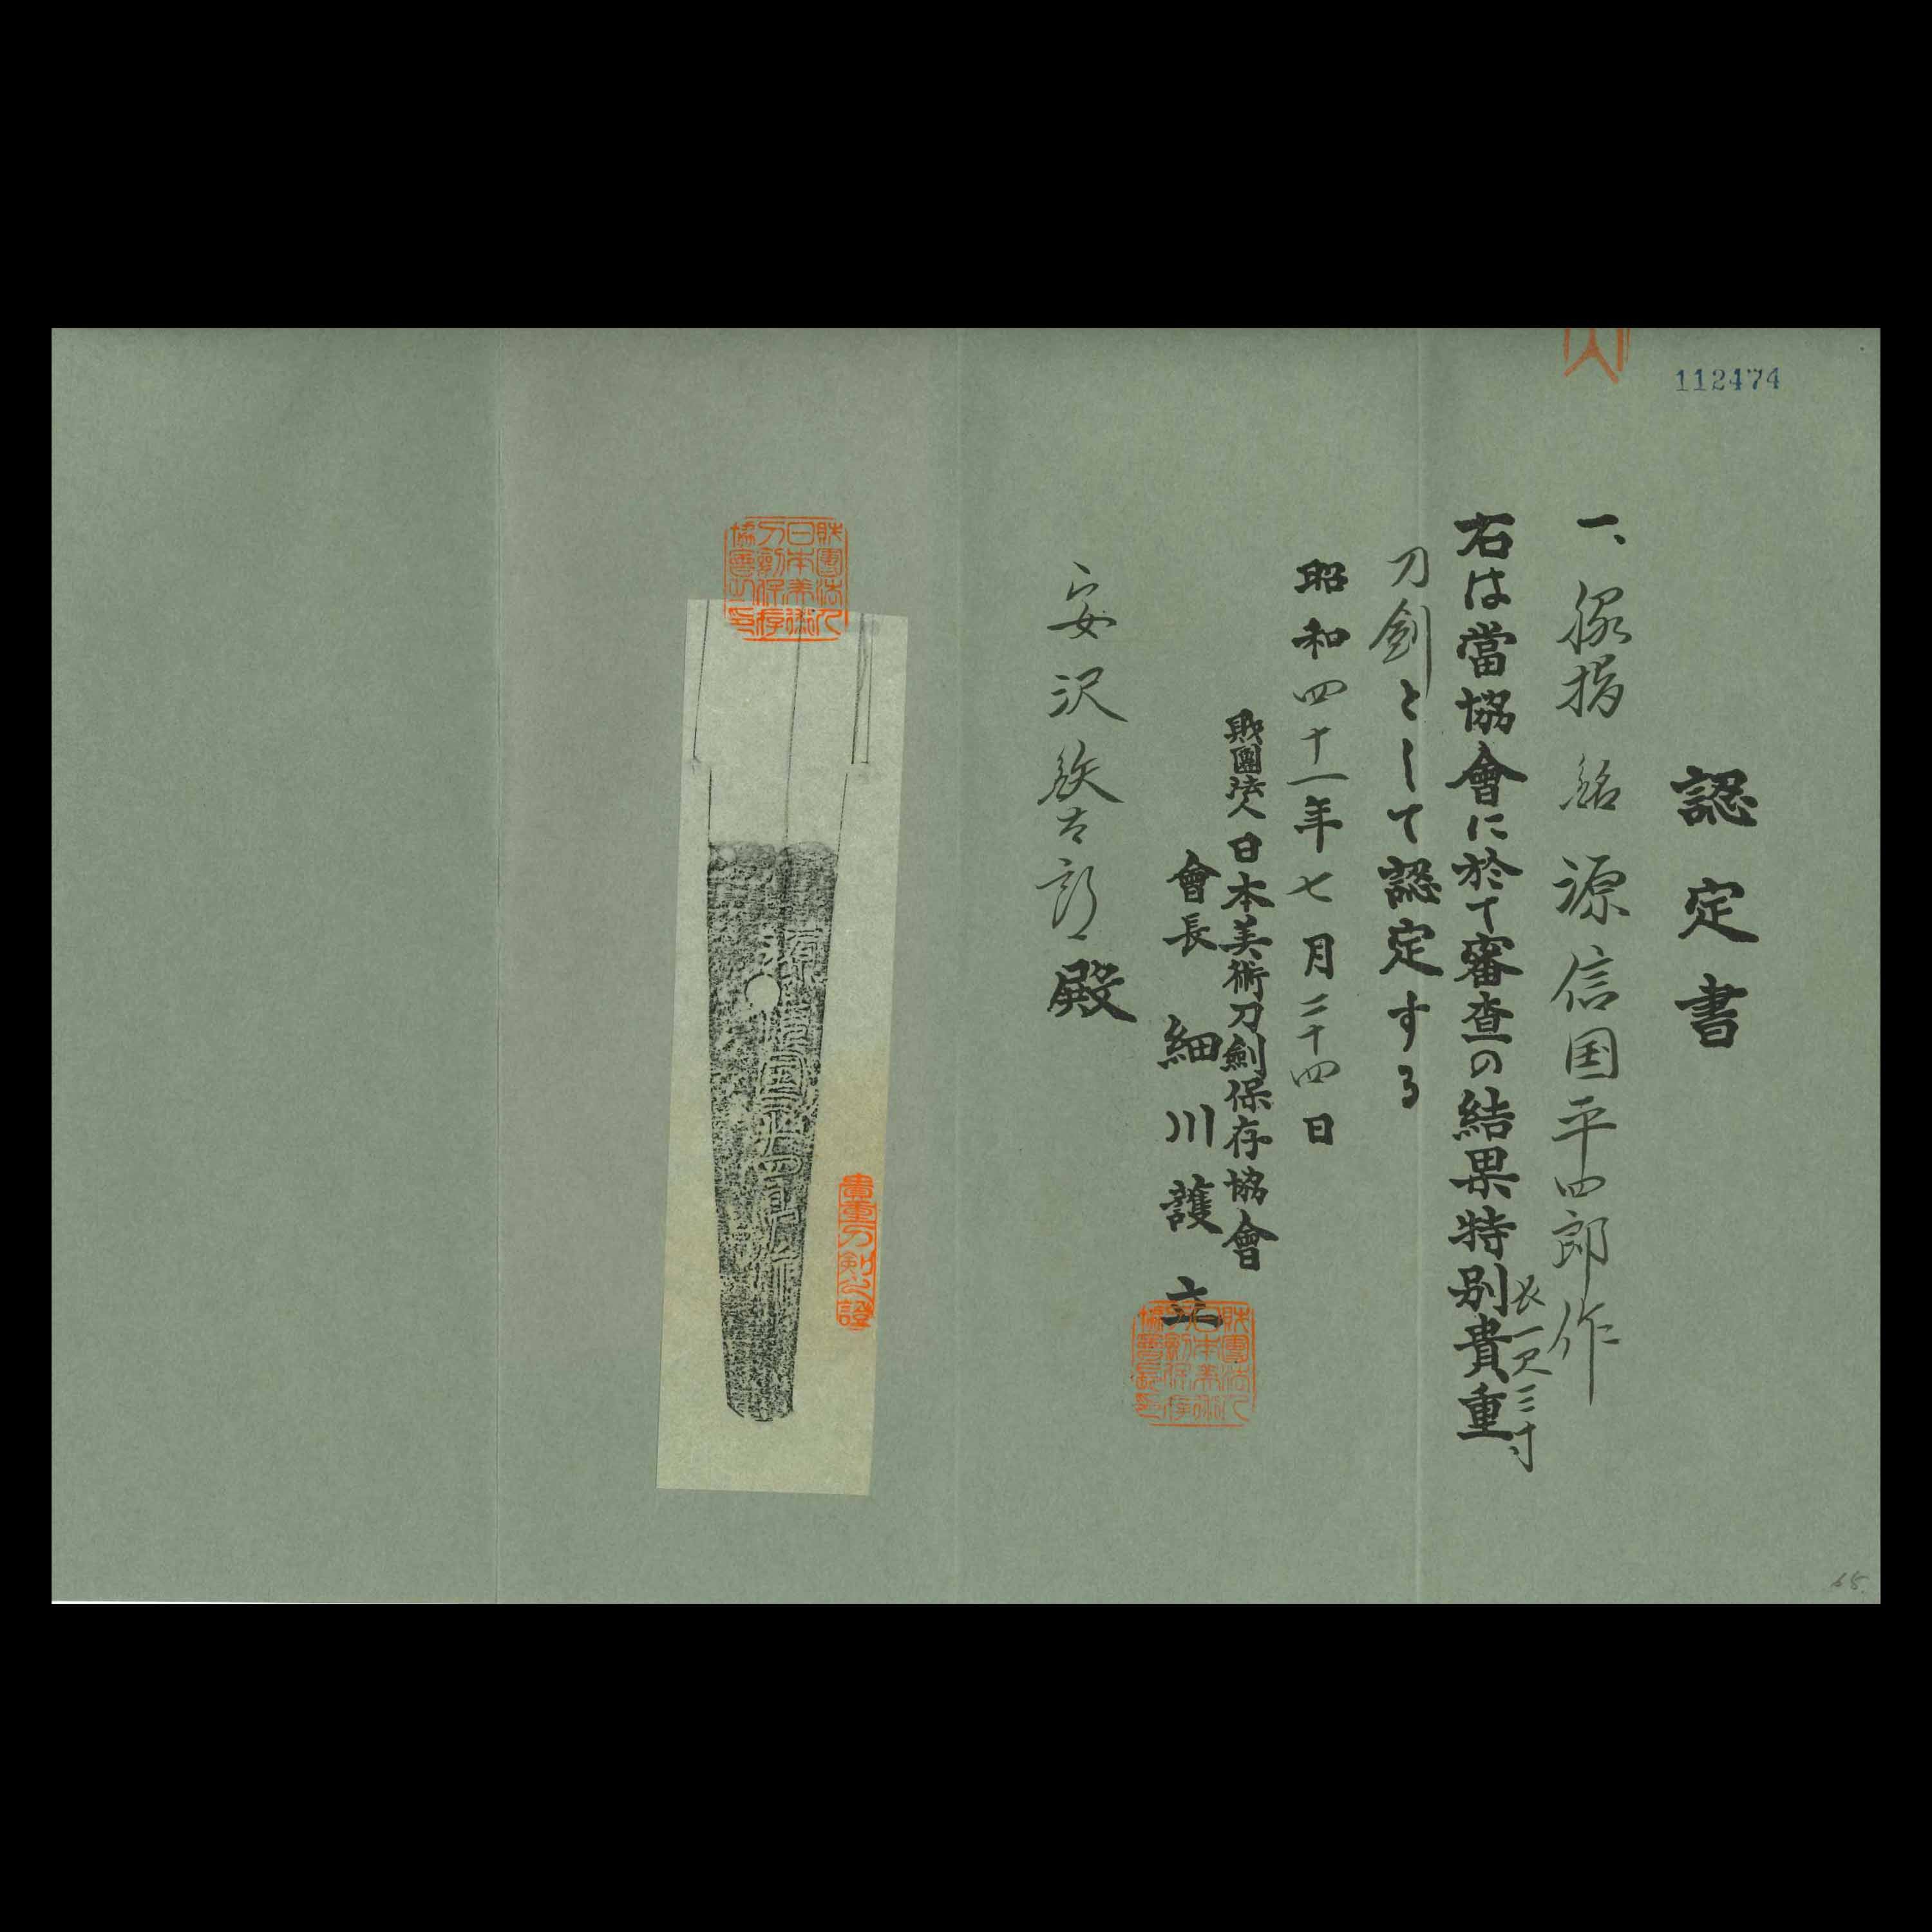 112474
認定書
一、脇指 銘 源信国平四郎作
長一尺三寸
右は當協會に於て審査の結果特別貴重
刀剣として認定する
昭和四十一年七月二十四日
財團法人日本美術刀劍保存協會
會長 細川護立
財團法人日本美術刀劍保存協會長印
安沢 殿
財團法人日本美術刀劍保存協會之印
源信国平四郎作
貴重刀剣之證
68.